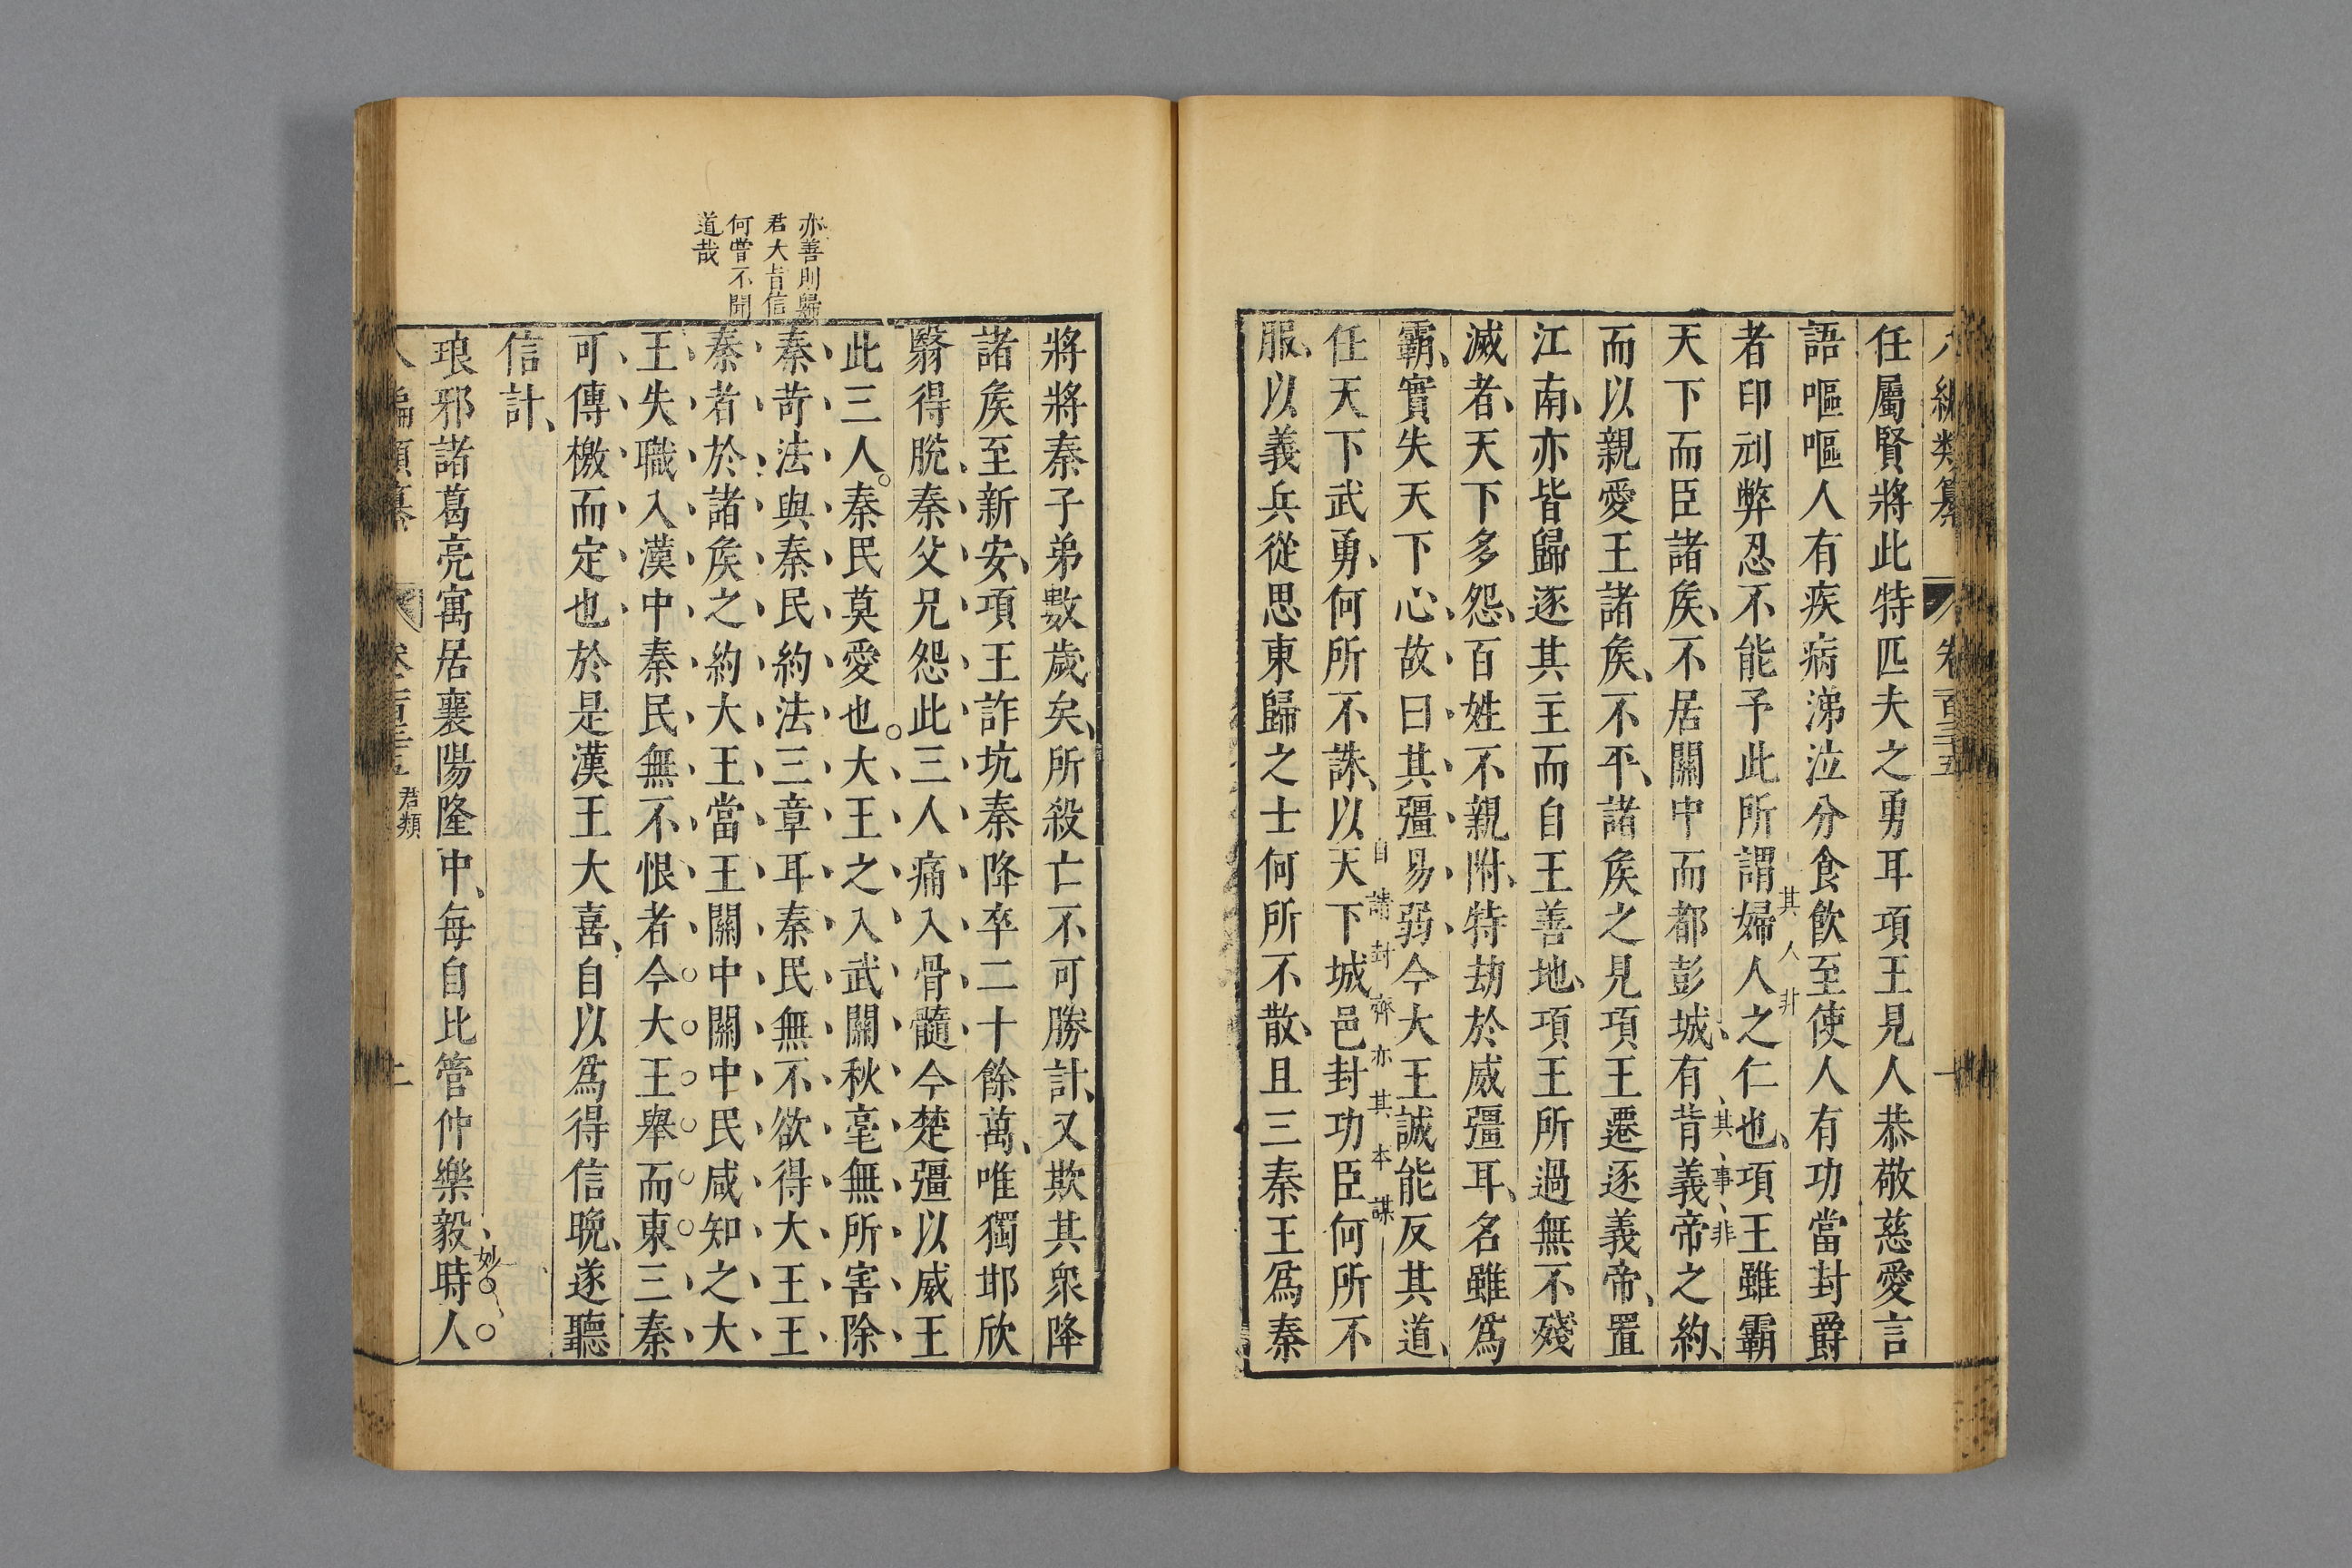 任屬賢將此特匹夫之勇耳項王見人恭敬慈愛言
語嘔嘔人有疾病涕泣分食飲至使人有功當封爵
者印刓弊忍不能予此所謂婦人之仁也、項王雖霸
其人非
天下而臣諸矦、不居關中而都彭城、有背義帝之約、
其事非
而以親愛王諸矦、不平、諸矦之見項王遷逐義帝、置
江南、亦皆歸逐其主而自王善地、項王所過無不殘
滅者、天下多怨、百姓不親附、特劫於威彊耳、名雖爲
霸、實失天下心故曰其彊易弱今大王誠能反其道、
任天下武勇、何所不誅、以天下城邑封功臣何所不
自請封齊亦其本謀
服、以義兵從思東歸之士何所不散、且三秦王爲秦
將將秦子弟數歲矣、所殺亡不可勝計、又欺其衆降
諸矦至新安、項王詐坑秦降卒二十餘萬、唯獨邯欣
翳得脫秦父兄怨此三人痛入骨髓今楚彊以威王
此三人。秦民莫愛也。大王之入武關秋毫無所害除
秦苛法與秦民約法三章耳秦民無不欲得大王王
秦者於諸矦之約大王當王關中關中民咸知之大
王失職入漢中秦民無不恨者今大王舉而東三秦
可傳檄而定也於是漢王大喜、自以爲得信晚、遂聽
信計、
琅邪諸葛亮寓居襄陽隆中、每自比管仲樂毅時人
妙
亦善則歸
君大旨信
何嘗不聞
道哉
君類